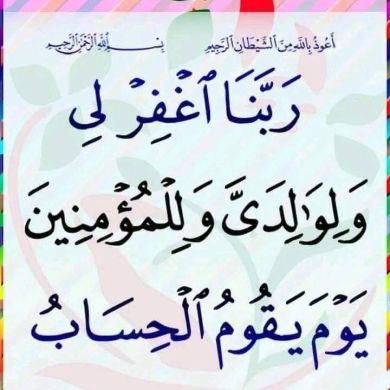 أَعُوذُ بِاللَّهِ مِنَ الشَّيْطَانِ الرَّجِيمِ بِسْمِ اللَّهِ الرَّحْمَنِ الرَّحِيمِ
رَبَّنَا ٱغْفِرْ لِى
وَلِوَٰلِدَىَّ وَلِلْمُؤْمِنِينَ
يَوْمَ يَقُومُ ٱلْحِسَابُ